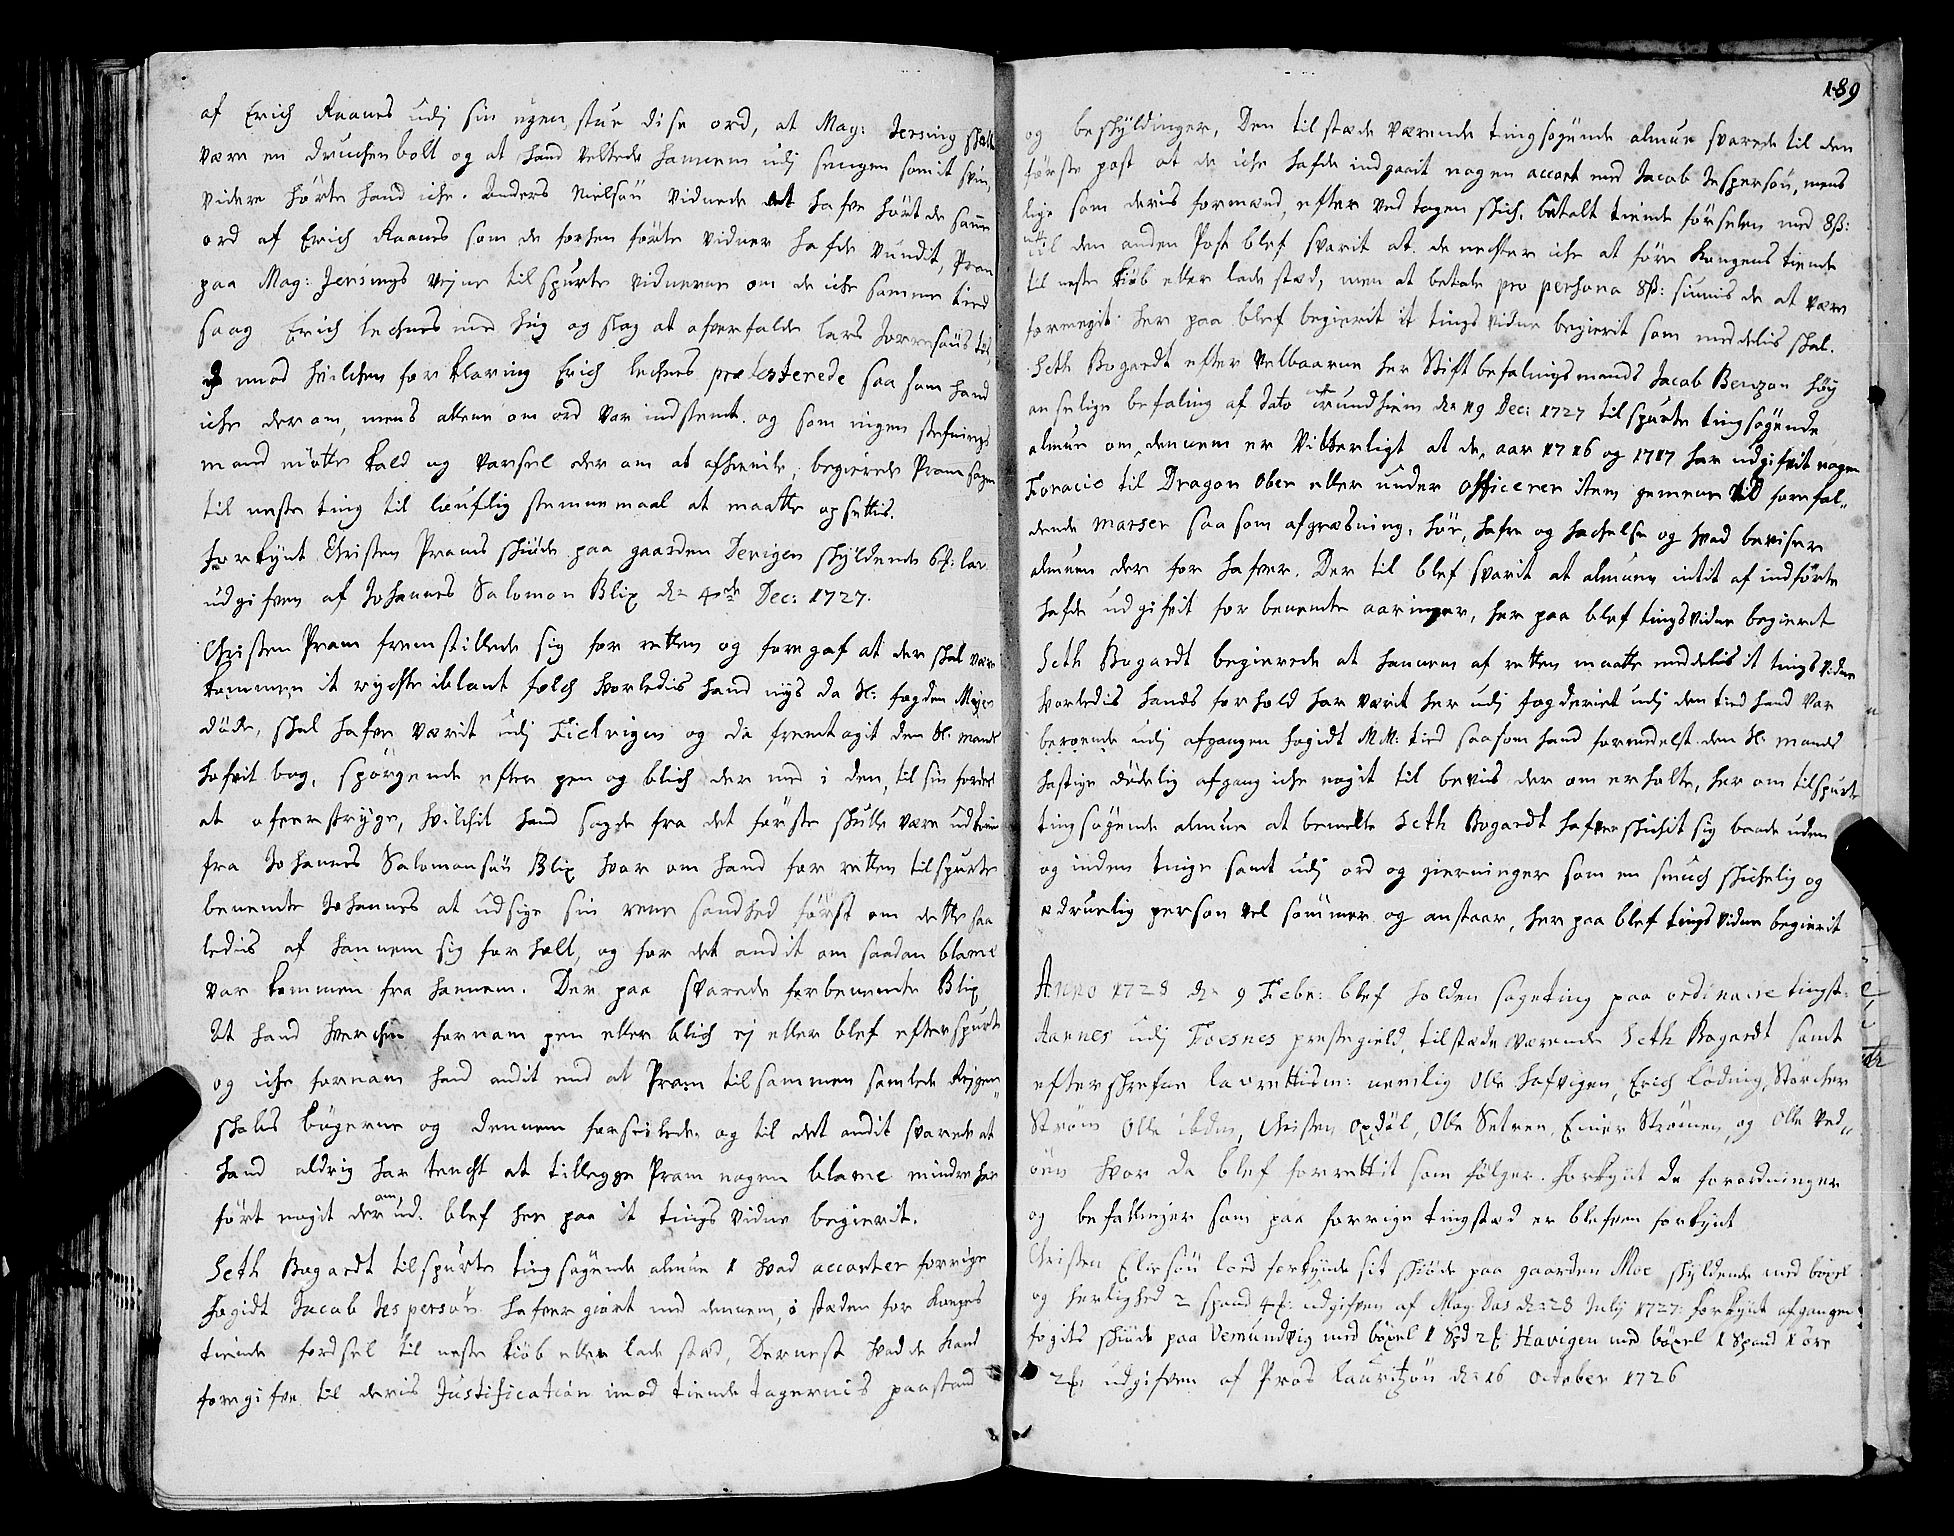 af Erich Raanes udj sin egen stue dise ord, at Mag: Jersing skall
være en druchenbolt og at hand veltede hannem udj sengen som it svin,
videre hörte hand iche. Anders Nielsön vidnede at hafve hört de same
ord af Erich Raanes som de forhen förte vidner hafde vundit, Pram
paa Mag: Jersings vejne tilspurte vidnerne om de iche samme tied
saag Erich lechnes med hug og slag at ofverfalde lars
imod hvilchen forklaring Erich lechnes protesterede saasom hand
iche derom, mens allene om ord var indstemt. og som ingen stefnings
mand mötte kald og varsel der om at afhiemle, begierede Pram sagen
til neste ting til lovflig stemnemaal at maatte opsettis.
forkynt Christen Prams skiöde paa gaarden Derigen skyldende
udgifven af Johannes Salomon Blix dn 4de Dec: 1727.
Christen Pram fremstillede sig for retten og foregaf at der skal være
kommen it rychte iblant folch hvorledis hand nys da Sl: fogden
döde, skal hafve værit udj Fielvigen og da fremtagit den Sl: mands
bog, spörgende efter pen og blech der med i den, til sin fordeel
at ofverstryge, hvilchit hand sagde fra det förste skulle være udkomen
fra Johannes Salomonsön Blix hvor om hand for retten tilspurte
benemte Johannes at udsige sin rene sandhed först om dette saa
ledis af hannem sig forholt, og for det andit om saadan blame
var kommen fra hannem. Der paa svarede forbenemte Blix
At hand hverchen fornam pen eller blech ej eller blef efterspurt
og iche fornam hand andit end at Pram tilsammen samlede Regen"
skabs bögerne og dennem forseiglede og til det andit svarede at
hand aldrig har tencht at tillegge Pram nogen blame mindre har
fört nogit der om ud. blef her paa it tings vidne begierit.
Seth Bogardt tilspurte tingsögende almue 1 hvad accorter forrige
fogidt Jacob Jespersön hafver giort med dennem, i steden for Kongens
tiende fördsel til neste kiöb eller lade stæd, Dernest hvad de kand
foregifve til deris Justification imod tiende tagernis paastand
189
og beskyldinger, Den tilstæde værende tingsögende almue svarede til den
förste post at de iche hafde indgaait nogen accort med Jacob Jespersön, mens
lige som deris formænd, efter vedtagen skich, betalt tiende förselen med 8ß:
til den anden Post blef svarit at de nechter iche at före Kongens tiende
til neste kiöb eller lade stæd, men at betale pro persona 8ß: siunis de at være
formegit. her paa blef begierit it tings vidne begierit som meddelis skal.
Seth Bogardt efter velbaarne her Stiftbefalingsmands Jacob Benzon höy
anselige befaling af dato Trundhiem dn 19 Dec: 1727 tilspurte tingsögende
almue om dennem er Vitterligt at de, aar 1716 og 1717 har udgifvit nogen
Foracio til Dragon Ober eller under officerer item gemene til forefal"
dende marser saasom afgræsning, höe, hafre og hachelse og hvad beviser
almuen der for hafver. Der til blef svarit at almuen intit af indförte
hafde udgifvit for benemte aaringer, her paa blef tingsvidne begieret
Seth Bogardt begierede at hannem af retten maatte meddelis it tings vidne
hvorledis hands forhold har værit her udj fogderiet udj den tied hand var
beroende udj afgangen fogidt MM: tied saasom hand formedelst den Sl: mands
hastige dödelig afgang iche nogit til bevis der om erholte, her om tilspurte
tingsögende almue at bemelte Seth Bogardt hafver skichit sig baade uden
og inden tinge samt udj ord og gierninger som en smuch skichelig og
ædruelig person vel sömmer og anstaar, her paa blef tings vidne begierit
Anno 1728 dn 9 Febr: blef holden sageting paa ordinaire tingst:
Aannes udj Foesnes prestegield, tilstæde værende Seth Bogardt samt
efterskrefne lavrettism: nemlig Olle hafvigen, Erich löding, Störcher
Ström Olle ibdm, Christen Opdöl, Olle Setren, Einer Strömen, og Olle Ved"
öen hvor da blef forrettit som fölger. forkynt de forordninger
og befallinger som paa forrige tingstæd er blefven forkynt
Christen Elirsön loed forkynde sit skiöde paa gaarden Moe skyldende med böxel
og herlighed 2 spand udgifven af Mag: Das dn 28 July 1727. forkynt afgangen
fogits skiöde paa Vemundvig med böxel 1 Spd Havigen med böxel 1 Spand 1 öre
udgifven af Pros lauritzön dn 16 October 1726